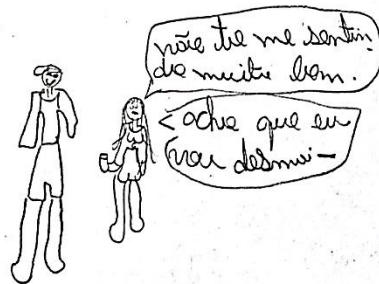 não tô me sentin
do muito bem.
acho que eu
vou desmai-